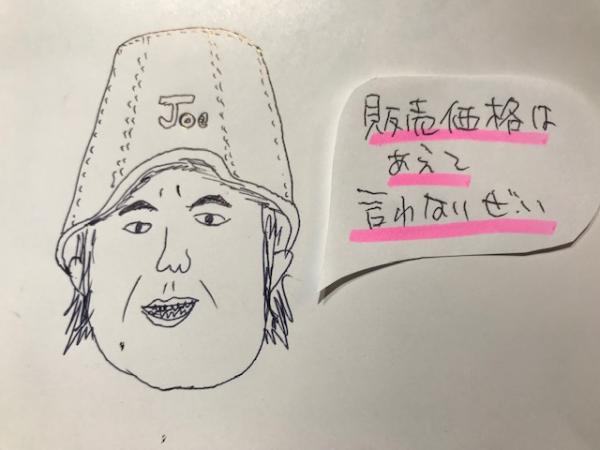 Joe
販売価格は
あえて
言わないぜぃ